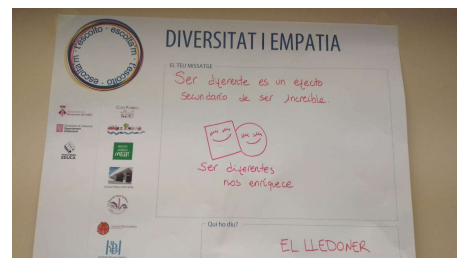 escolta'm · t'escolto · escolta'm · t'escolto
DIVERSITAT I EMPATIA
EL TEU MISSATGE
Ser diferente es un efecto
secundario de ser increíble.
Ser diferentes
nos enriquece
Qui ho diu?
EL LLEDONER